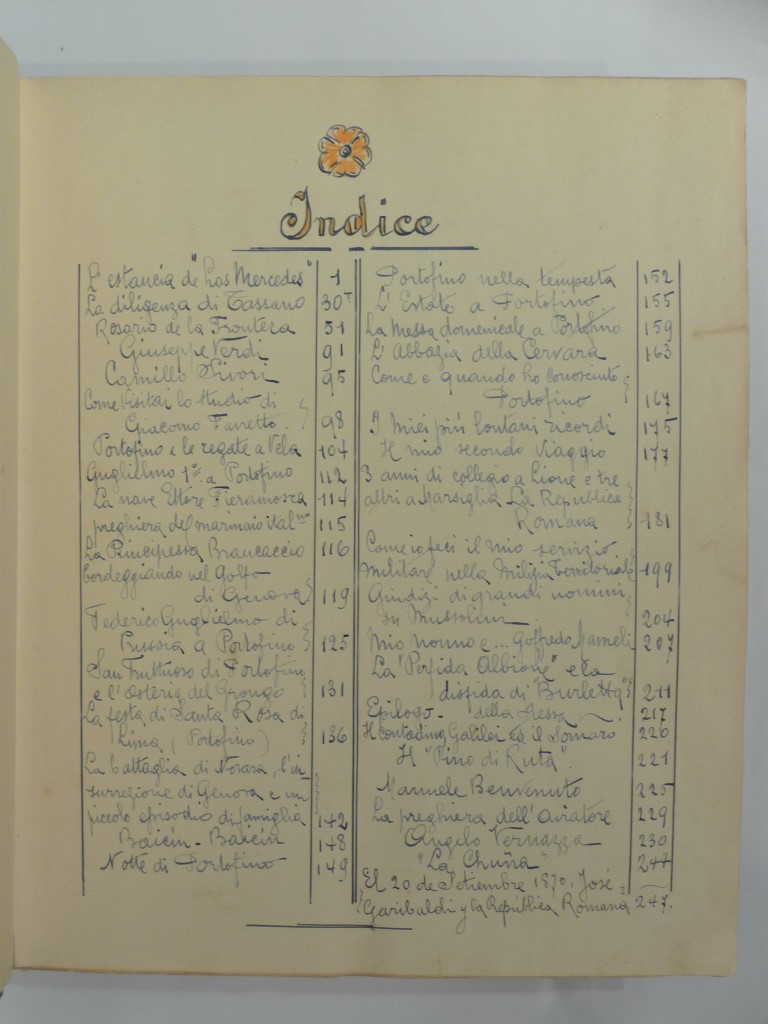 Indice
L'estancia de "Las Mercedes" 1
La diligenza di Tassano 30
Rosario de la Frontera 51
Giuseppe Verdi 91
Camillo Sivori 95
Come visitai lo studio di
Giacomo Favretto. 98
Portofino e le regate a Vela 104
Guglielmo 1º a Portofino 112
La nave Ettore Fieramosca 114
preghiera del marinaio ital.no 115
La Principessa Brancaccio 116
Bordeggiando nel Golfo
di Genova 119
Federico Guglielmo di
Prussia a Portofino 125
San Fruttuoso di Portofino
e l'osteria del Grongo 131
La festa di Santa Rosa di
Lima (Portofino) 136
La battaglia di Novara, l'in-
surrezione di Genova e un
piccolo episodio di famiglia 142
Baicin - Baicin 148
Notte di Portofino 149
Portofino nella tempesta 152
L'Estate a Portofino. 155
La Messa domenicale a Portofino 159
L'Abbazia della Cervara 163
Come e quando ho conosciuto
Portofino 167
I miei più lontani ricordi 175
Il mio secondo viaggio 177
3 anni di collegio a Lione e tre
altri a Marsiglia La Republica
Romana 181
Come io feci il mio servizio
militare nella Milizia Territoriale 199
Giudizi di grandi uomini
su Mussolini. 204
Mio nonno e... Goffredo Mameli 207
La "Perfida Albione" e la
disfida di "Burletta" 211
Epilogo - della Messa 217
Il contadino Galilei ed il Somaro 220
Il "Pino di Ruta". 221
Manuele Benvenuto 225
La preghiera dell'Aviatore 229
Angelo Vernazza 230
"La Chuña" 247
El 20 de Setiembre 1870. José
Garibaldi y la República Romana 247.